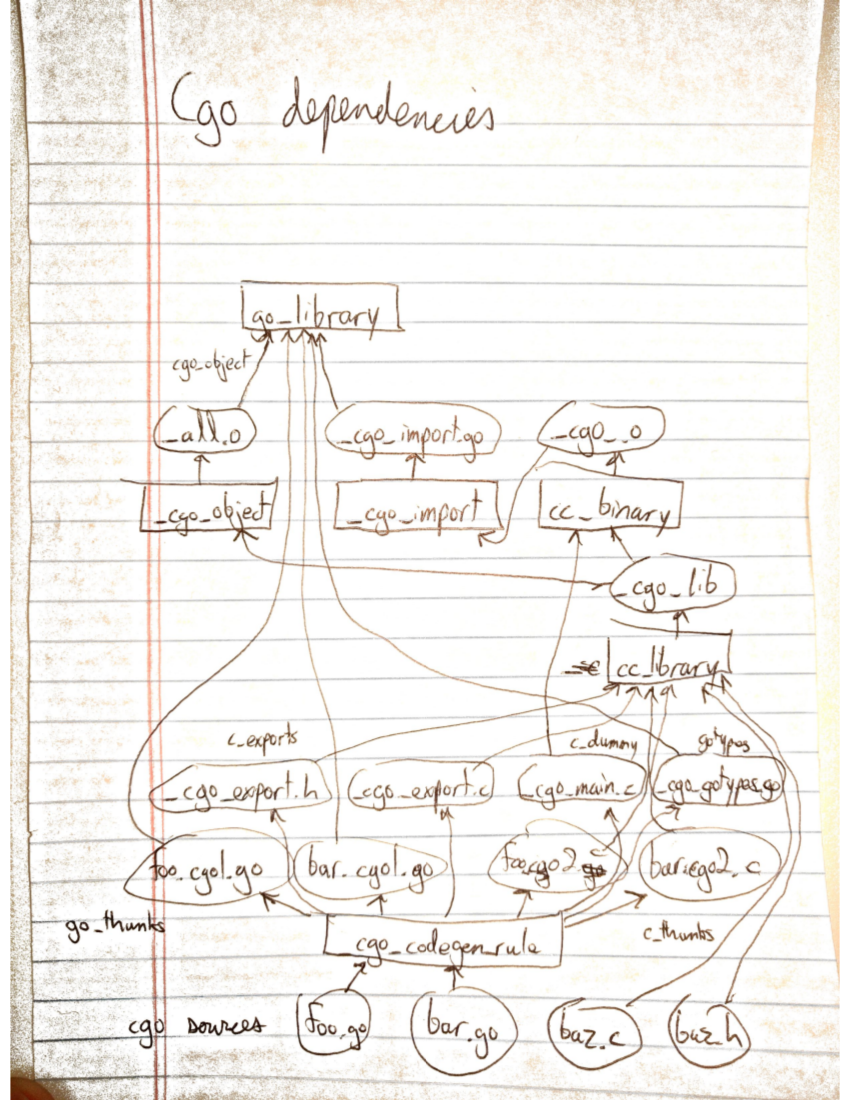 Cgo dependencies
go_library
cgo_object
_all.o
_cgo_import.go
_cgo_.o
_cgo_object
_cgo_import
cc_binary
_cgo_lib
cc_library
c_exports
c_dummy
gotypes
_cgo_export.h
_cgo_export.c
_cgo_main.c
_cgo_gotypes.go
foo.cgo1.go
bar.cgo1.go
foo.cgo2.c
bar.cgo2.c
go_thunks
c_thunks
cgo_codegen_rule
cgo sources
foo.go
bar.go
baz.c
baz.h